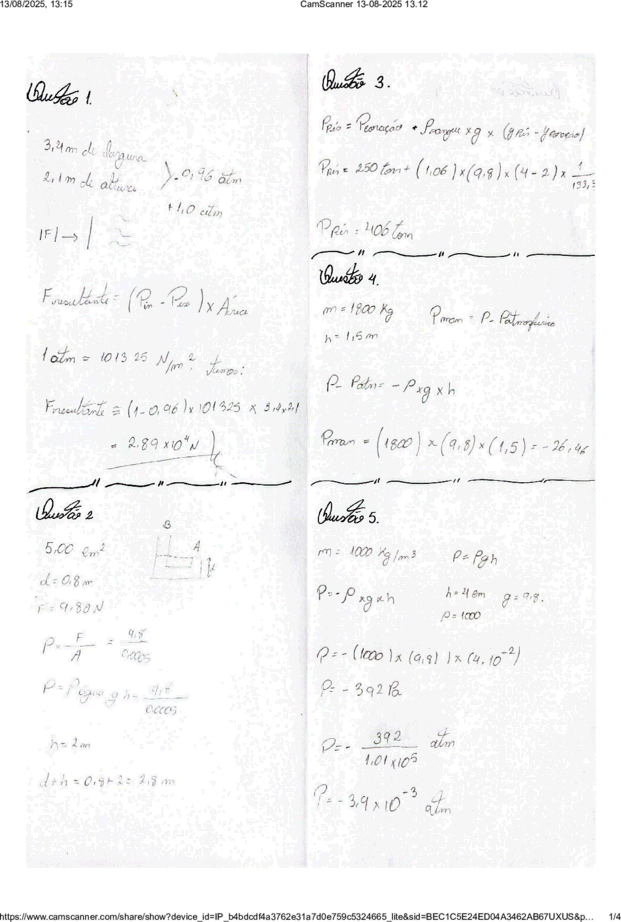 13/08/2025, 13:15
CamScanner 13-08-2025 13.12
Questão 1.
3,4m de largura
2,1m de altura
0,96 atm
+1,0 atm
|F| →
Fresultante = (Pin - Pex) x Área
1 atm = 101325 N/m². Temos:
Fresultante = (1-0,96) x 101325 x 3,4x2,1
= 2.89 x10⁴ N
Questão 2
B
A
5,00 cm²
d = 0,8 m
F = 9,80 N
P = F/A = 9,8/0,0005
P = Págua g h = 9,8/0,0005
h = 2 m
d+h = 0,8+2 = 2,8 m
Questão 3.
PRés = Pcoração + Psangue x g x
PRés = 250 torr + (1,06) x (9,8) x (4-2) x
PRés = 406 torr
Questão 4.
m = 1800 Kg
h = 1,5 m
Pman = P - Patmosférico
P - Patm = - P x g x h
Pman = (1800) x (9,8) x (1,5) = -26,46
Questão 5.
m = 1000 Kg/m³ P = Pgh
P = - P x g x h h = 4 cm g = 9,8.
ρ = 1000
P = - (1000) x (9,8) x (4.10⁻²)
P = - 392 Pa
P = - 392/1,01x10⁵ atm
P = - 3,9 x 10⁻³ atm
https://www.camscanner.com/share/show?device_id=IP_b4bdcdf4a3762e31a7d0e759c5324665_lite&sid=BEC1C5E24ED04A3462AB67UXUS&p... 1/4